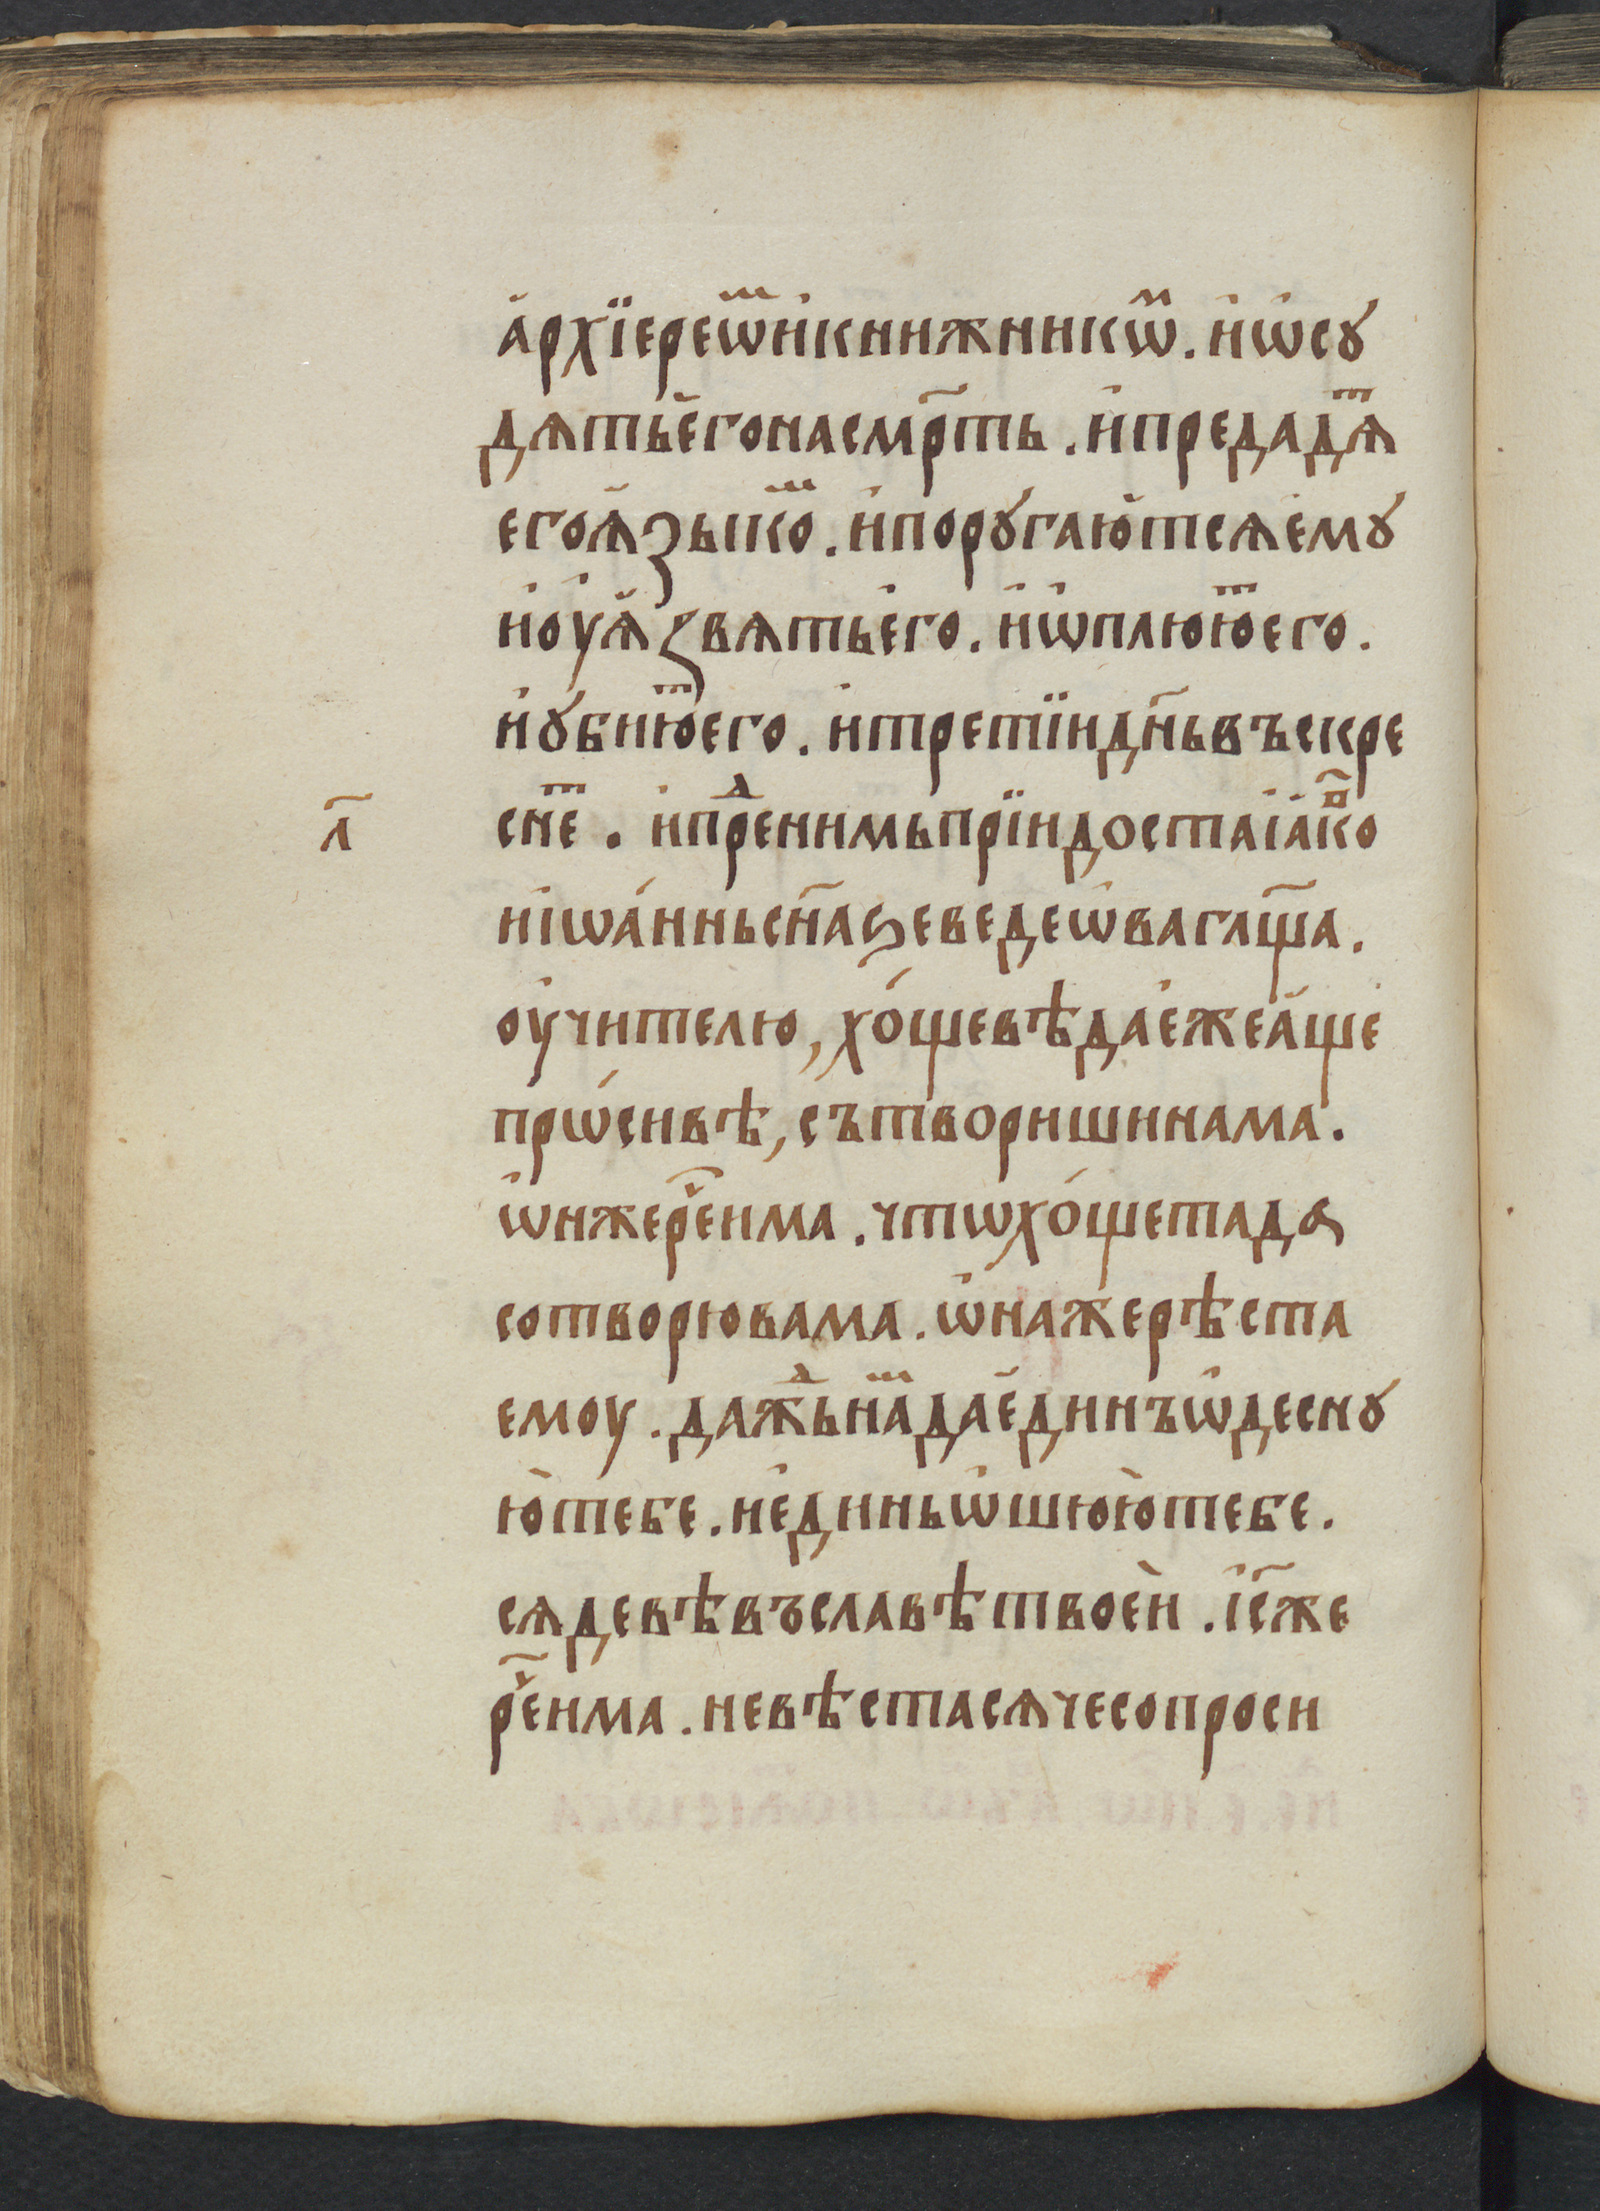 а҆рхїерещⷨ҇и҆книжникѡⷨ. и҆ѡ҆сꙋ
дѧтье҆гонасмр҃ть. и҆предадⷮѧ
егоꙗ҆ꙁыкоⷨ. и҆порꙋгаю҆тсѧе҆мꙋ
и҆оу҆ѧ҆ꙁвѧтье҆го. и҆ѡ҆плюю҆ⷮего.
и҆ꙋ҆бию҆ⷮего. и҆третїидн҃ьвъскре
снеⷮ. и҆преⷣнимьпрїидостаі҆а҆кⷪ҇о
л҃
ні҆ѡа́нньсн҃аѕеведеѡ҆вагл҃ща.
оу҆чителю, хо́щевѣдае҆жеа҆ще
прѡ́сивѣ, сътворишинама.
ѡ҆нжерⷱ҇еима. чтѡхо́щетада
сотворювама. ѡ҆нажерѣста
емоу. даⷤⷣьнаⷨдае҆динъѡ҆деснꙋ
ю҆тебе. не҆диньѡ҆шюю҆тебе.
сѧдевѣвъславѣтвое҆и. і҆с҃же
рⷱ҇еима. невѣстасѧчесопроси